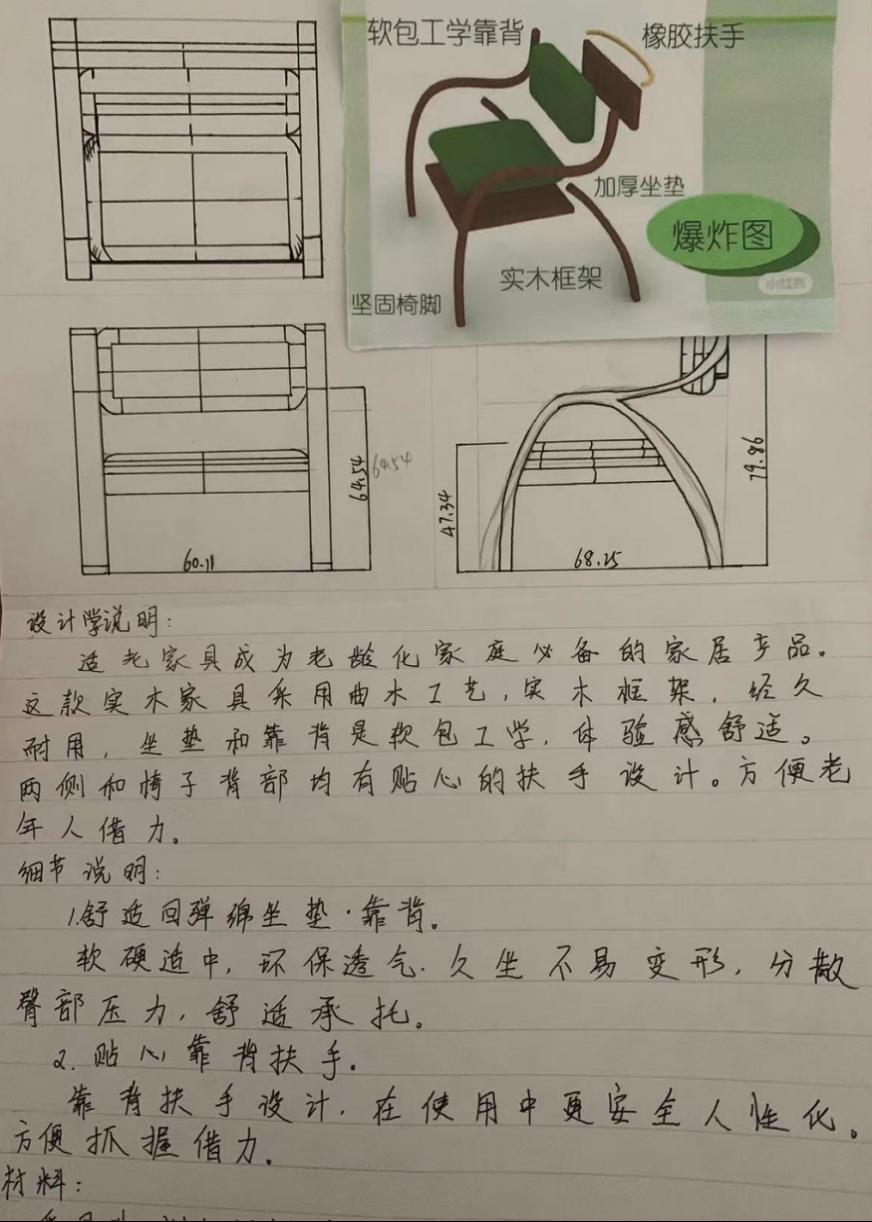 软包工学靠背
橡胶扶手
加厚坐垫
爆炸图
实木框架
小红书
坚固椅脚
64.54
64.54
60.11
47.34
79.86
68.25
设计学说明:
适老家具成为老龄化家庭必备的家居产品。
这款实木家具采用曲木工艺,实木框架,经久
耐用,坐垫和靠背是软包工学,体验感舒适。
两侧和椅子背部均有贴心的扶手设计。方便老
年人借力。
细节说明:
1.舒适回弹绵坐垫·靠背。
软硬适中,环保透气.久坐不易变形,分散
臀部压力,舒适承托。
2.贴心靠背扶手。
靠背扶手设计,在使用中更安全人性化。
方便抓握借力。
材料: